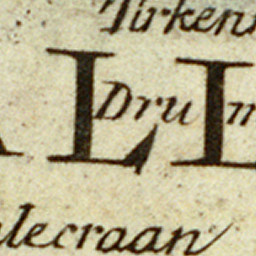 Tirken
LL
Drum
alecraan